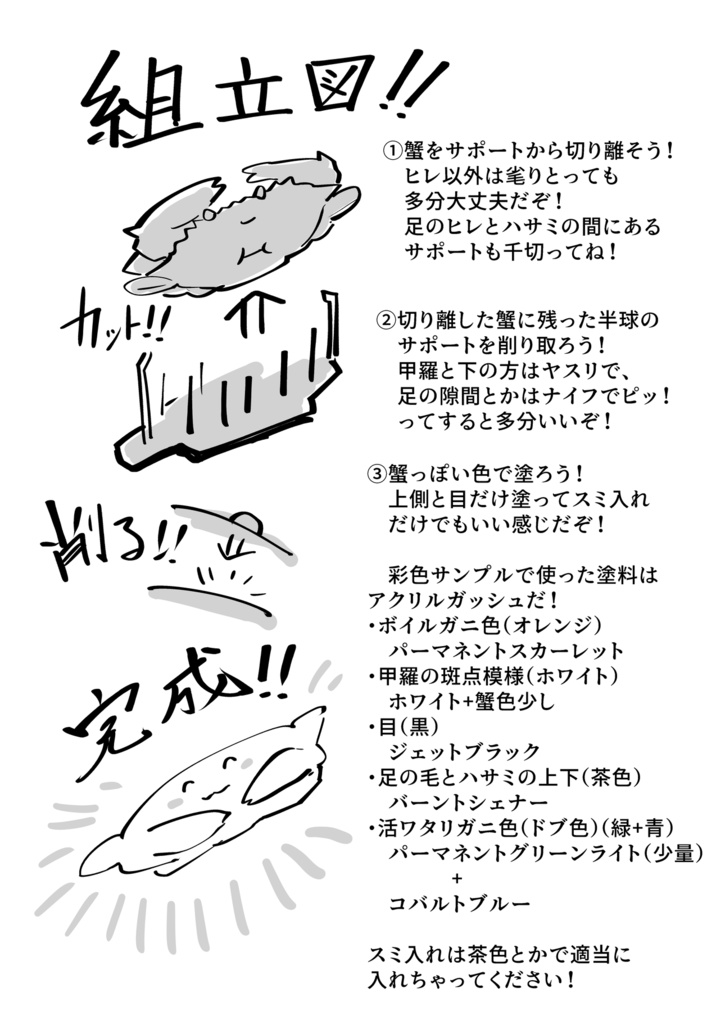 組立図!!
①蟹をサポートから切り離そう！
ヒレ以外は毟りとっても
多分大丈夫だぞ！
足のヒレとハサミの間にある
サポートも千切ってね！
カット!!
②切り離した蟹に残った半球の
サポートを削り取ろう！
甲羅と下の方はヤスリで、
足の隙間とかはナイフでピッ！
ってすると多分いいぞ！
削る!!
③蟹っぽい色で塗ろう！
上側と目だけ塗ってスミ入れ
だけでもいい感じだぞ！
彩色サンプルで使った塗料は
アクリルガッシュだ！
・ボイルガニ色（オレンジ）
パーマネントスカーレット
・甲羅の斑点模様（ホワイト）
ホワイト+蟹色少し
・目（黒）
ジェットブラック
・足の毛とハサミの上下（茶色）
バーントシェナー
・活ワタリガニ色（ドブ色）（緑+青）
パーマネントグリーンライト（少量）
+
コバルトブルー
完成!!
スミ入れは茶色とかで適当に
入れちゃってください！